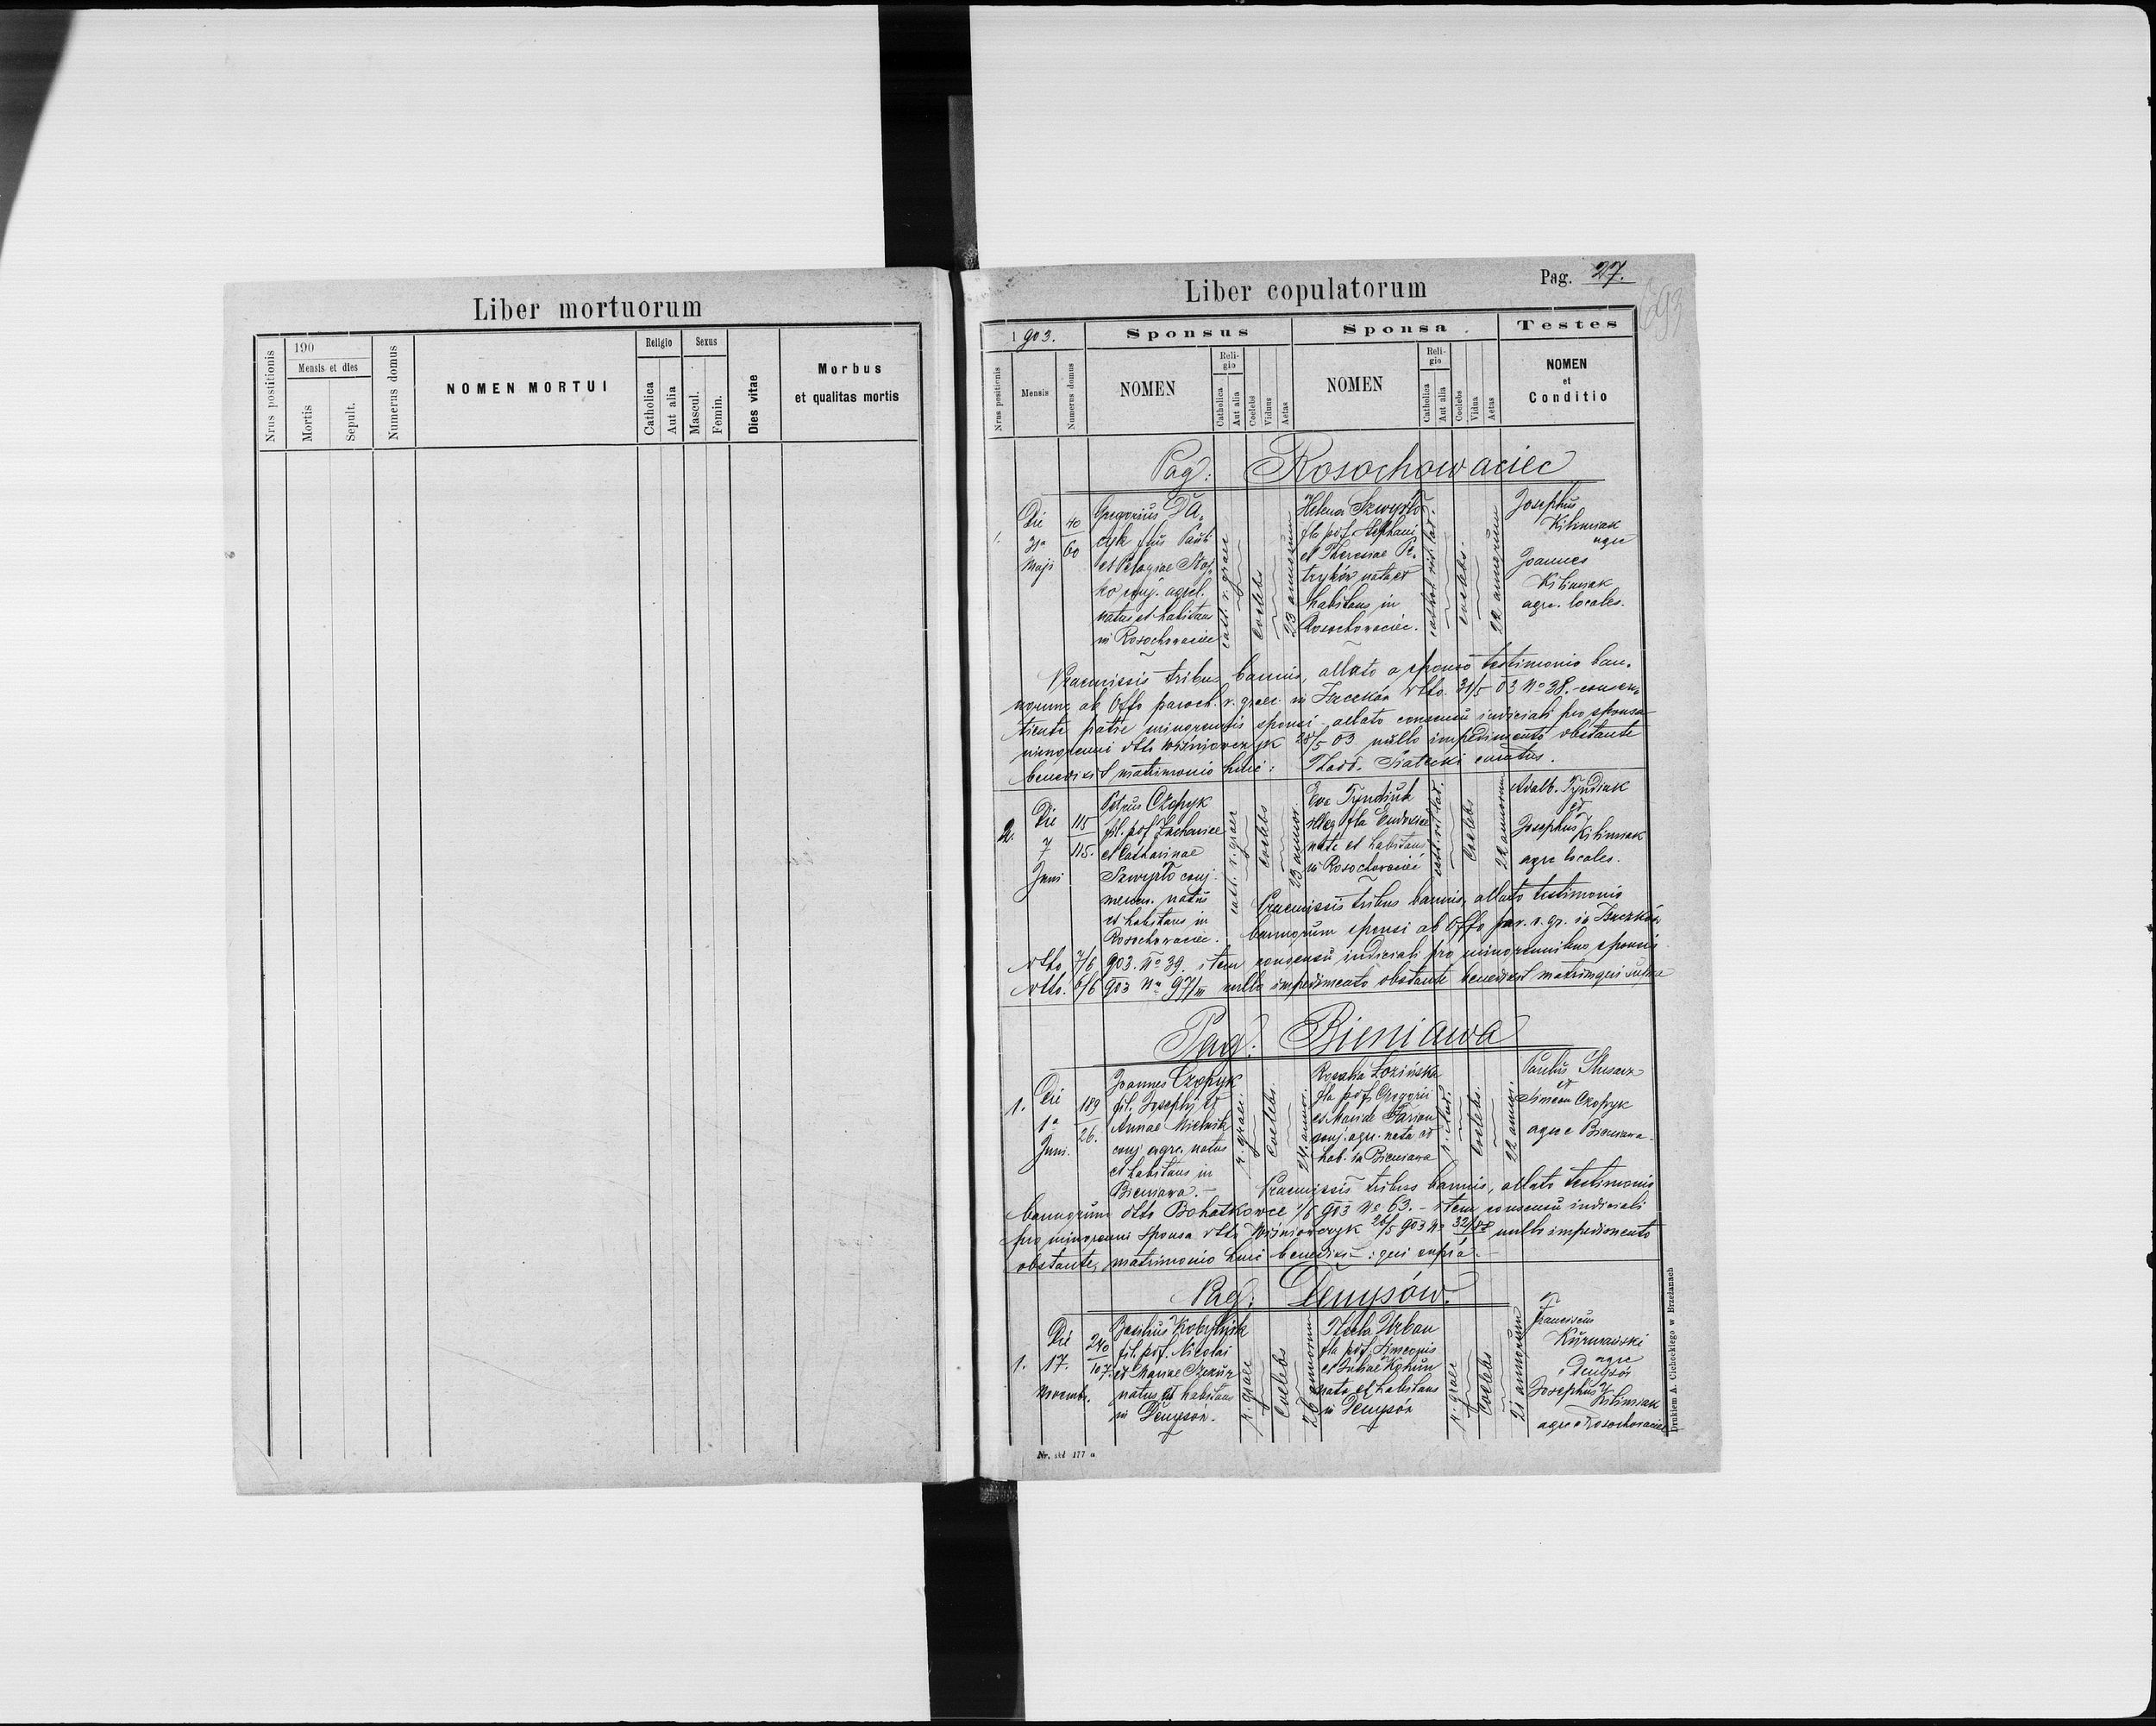 Liber mortuorum
190
Religio
Sexus
Mensis et dies
Nrus postitionis
Mortis
Sepult.
Numerus domus
NOMEN MORTUI
Catholica
Aut alia
Mascul.
Femin.
Dies vitae
Morbus
et qualitas mortis
Liber copulatorum
Pag. 27.
693
1903.
Sponsus
Sponsa
Testes
Nrus positionis
Mensis
Numerus domus
NOMEN
Reli-
gio
Catholica
Aut alia
Coelebs
Viduus
Aetas
NOMEN
Reli-
gio
Catholica
Aut alia
Coelebs
Vidua
Aetas
NOMEN
et
Conditio
Pag: Rosochowaciec
1.
Die
31a
Maji
40
60
Gregorius
filius Pauli
et Pelagiae
conj. agricl.
natus et habitans
in Rosochowaciec
cath. r. graec
Coelebs
23 annorum
Helena Szwyrło
fla pdf. Stephani
et Theresiae Pe-
tryków nata et
habitans in
Rosochowaciec.
cathol. rit. lat.
coelebs.
22 annorum
Josephus
Kiliniak
agre
Joannes
Kiliniak
agre. locales.
Praemissis tribus bannis, allato a sponso testimonio ban-
norum ab Offo paroch. r. graec. in dtto. 31/5 03 No 38. consen-
tiente patre minorennis sponsi allato consensu iudiciali pro sponsa
minorenni dtto Wiśniowczyk 28/5 03 nullo impedimento obstante
benedixit matrimonio huic: Thad. curatus.
2.
Die
7
Juni
115
115.
Petrus Czopyk
fil. pdf. Zachariae
et Catharinae
Szwyrło conj.
natus
et habitans in
Rosochowaciec.
cath. r. graec
Coelebs
23 annor.
Eva Tyndiuk
illeg. fla Eudoxiae
nata et habitans
in Rosochowaciec
cath. rit. lat.
Coelebs
22 annorum
Adalb. Tyndiuk
et
Josephus Kiliniak
agre locales.
Praemissis tribus bannis, allato testimonio
bannorum sponsi ab Offo par. r. gr. in
dtto 7/6 903. No 39. item consensu iudiciali pro minorennibus sponsis
dtto. 6/6 903 No 97/III nullo impedimento obstante benedixit matrim qui supra
Pag: Bieniawa
1.
Die
1a
Juni.
189
26.
Joannes Czopyk
fil. Josephi et
Annae Mielnik
conj agre. natus
et habitans in
Bieniawa.
r. graec.
Coelebs.
24. annor.
Rosalia Łozińska
fla pdf. Gregorii
et Mariae
conj. agre. nata et
hab. in Bieniawa
r. lat.
Coelebs.
22 annor.
Paulus Slusarz
et
Simeon Czopyk
agre e Bieniawa.
Praemissis tribus bannis, allato testimonio
bannorum dtto Bohatkowce 1/6 903 No 63. - item consensu iudiciali
pro minorenni sponsa dtto Wiśniowczyk 26/5 903 No nullo impedimento
obstante, matrimonio huic benedixit: qui supra.
Pag: Denysów.
1.
Die
17.
Novemb.
240
107.
Basilius Kobylnik
fil. pdf. Nicolai
et Mariae
natus et habitans
in Denysów.
r. graec
Coelebs
26 annorum
Thecla Urban
fla pdf. Simeonis
et Juliae Kohun
nata et habitans
in Denysów
r. graec
Coelebs
21 annorum
Franciscus
agre
e Denysów
Josephus Kiliniak
agre e Rosochowaciec
Nr. skł 177 a
Drukiem A. Cichockiego w Brzeżanach